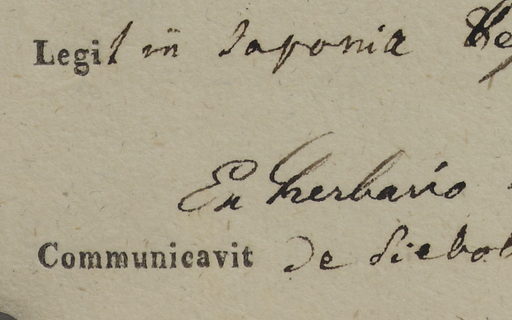 Legit in Japonia
Ex herbario
Communicavit de Siebol